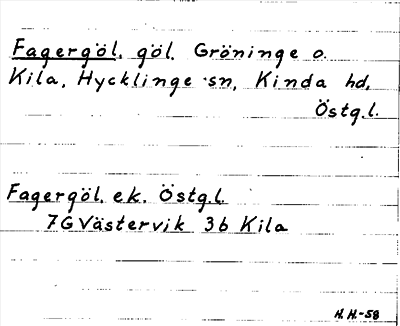 Fagergöl, göl, Gröninge o.
Kila, Hycklinge sn, Kinda hd,
Östg.l.
Fagergöl, ek. Östg.l.
7G Västervik 3b Kila
H.H.-58